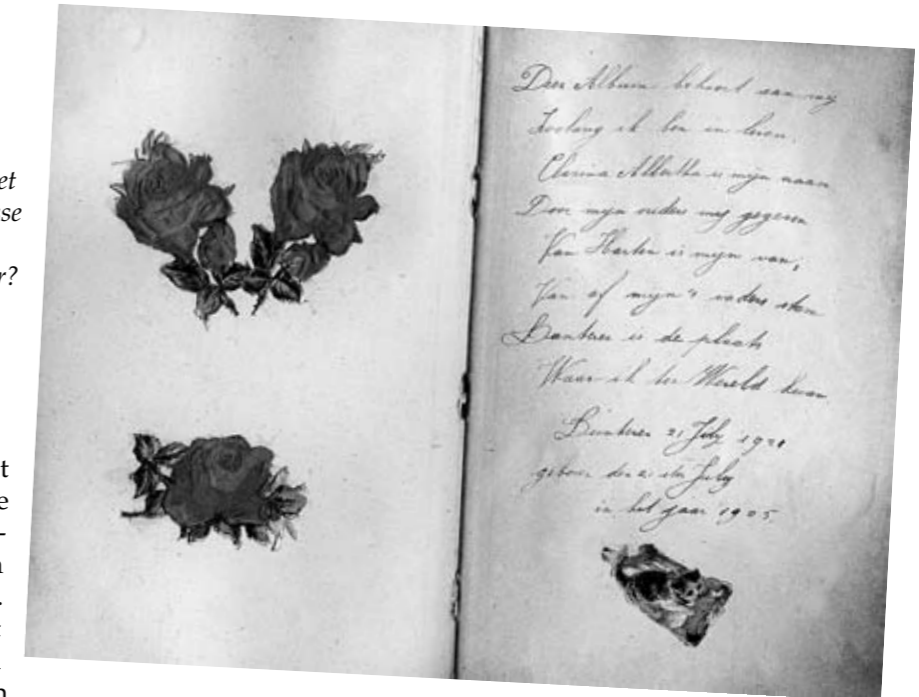 et
se
r?
t
e
-
n
.
Deze Album behoort aan mij
Zoolang ik ben in leven.
Clasina Albertha is mijn naam
Door mijn ouders mij gegeven
Van Harten is mijn van,
Van af mijn 's vaders stam
Bunteren is de plaats
Waar ik ter Wereld kwam
Bunteren 21 July 1921
geboren den 21 ste July
in het jaar 1905.